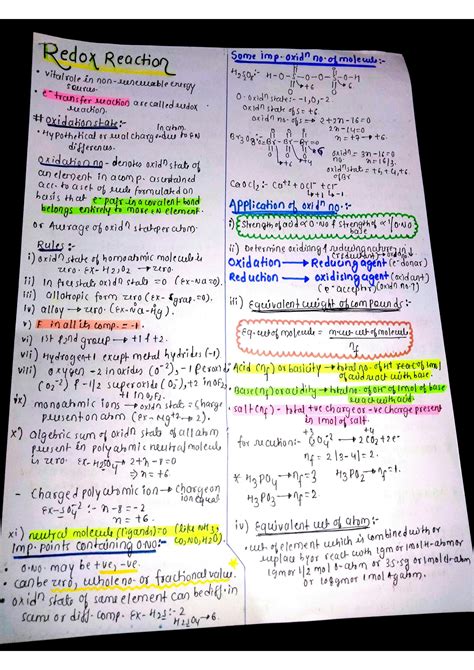 Redox Reaction
• vital role in non-renewable energy
sources.
• e⁻ transfer reaction are called redox
reaction.
# Oxidation state:-
• Hypothetical or real charge in atom due to EN
differences.
Oxidation no - denote oxidⁿ state of
an element in a comp. ascertained
acc. to a set of rule formulated on
basis that e⁻ pair in a covalent bond
belongs entirely to more eN element.
or Average of oxidⁿ state per atom
Rules :-
i) oxidⁿ state of homoatomic molecule is
zero. Ex- H2, O2 → zero.
ii) In free state oxidⁿ state = 0 (Ex-Na=0).
iii) allotropic form zero (Ex-
iv) alloy → zero (Ex- Na-Hg).
v) F in all its comp. = -1.
vi) 1st & 2nd group → +1 & +2.
vii) Hydrogen +1 except metal hydrides (-1)
viii) oxygen -2 in oxides (O⁻²), -1 Peroxide
(O2⁻²) & -1/2 superoxide (O2⁻), +2 in OF2,
+1 in O2F2.
ix) monoatomic ions → oxidⁿ state = charge
present on atom (Ex- Mg⁺² → 2).
x) Algebric sum of oxidⁿ state of all atom
present in polyatomic neutral molecule
is zero. Ex- H2SO4 → 2+n-8=0
⇒ n = +6.
- Charged polyatomic ion → charge on
ion equal
Ex- SO4⁻² :- n-8 = -2
n = +6.
xi) neutral molecule (ligands) = 0 (like NH3,
CO, NO, H2O)
Imp. points containing O.NO:-
O.NO may be +ve, -ve.
• can be zero, whole no. or fractional value.
• oxidⁿ state of same element can be diff. in
same or diff. comp. Ex- H2S :- -2
H2SO4 → 6
Some imp. oxidⁿ no. of molecule:-
H2S2O8:- H-O-S-O-O-S-O-H
O. oxidⁿ states: -1, 0, -2.
Oxidⁿ state of S = +6
oxidⁿ no. of S → 2+2n-16=0
2n-14=0
n = +7 → +6.
Br3O8:- O=Br-Br-Br=O
oxidⁿ = 3n-16=0
no. n = 16/3.
oxidⁿ state = +6, +4, +6.
of Br
CaOCl2:- Ca⁺² OCl⁻ Cl⁻
↳+1 ↳-1.
Application of oxidⁿ no.:-
i) Strength of acid ∝ O.NO & Strength of base ∝ 1/O.NO
ii) Determine oxidising & reducing nature:-
(reductant)
Oxidation → Reducing agent (e⁻donar)
Reduction → oxidising agent (oxidant)
(e⁻acceptor)
iii) Equivalent weight of compounds:-
Eq. wt of molecule = m.wt. wt of molecule
nf
Acid (nf) or basicity → total no. of H⁺ react of 1mol
of acid react with base.
Base (nf) or acidity → total no. of OH⁻ of 1mol of base
react with acid.
• salt (nf) - total +ve charge or -ve charge present
in 1mol of salt.
for reactions:- C2O4⁻² → 2CO2 + 2e⁻
nf = 2|3-4| = 2.
* H3PO4 → nf = 3 H3PO2 → nf = 1.
H3PO3 → nf = 2
iv) Equivalent wt of atom:-
• wt of element which is combined with or
replace by or react with 1gm or 1mol H-atom or